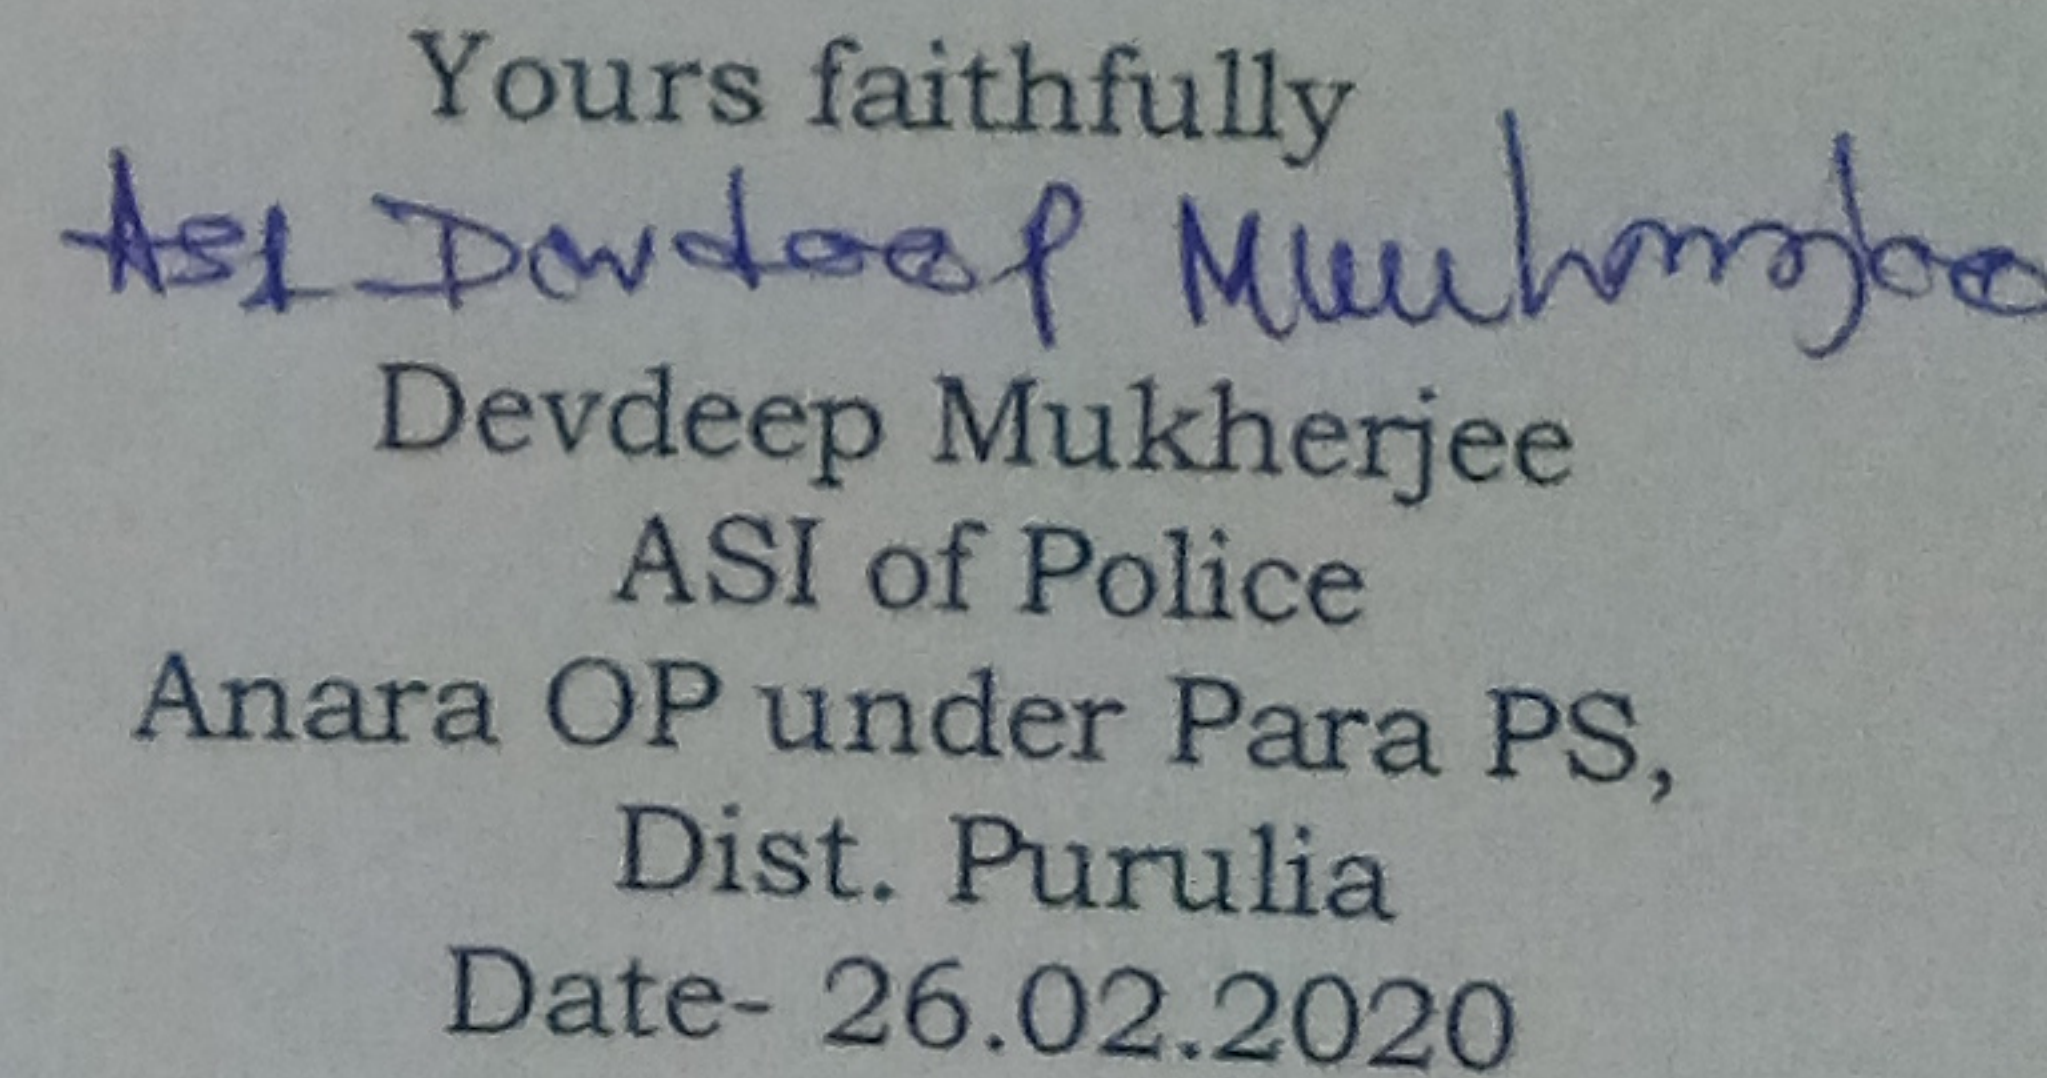 Yours faithfully
ASI Devdeep Mukherjee
Devdeep Mukherjee
ASI of Police
Anara OP under Para PS,
Dist. Purulia
Date- 26.02.2020